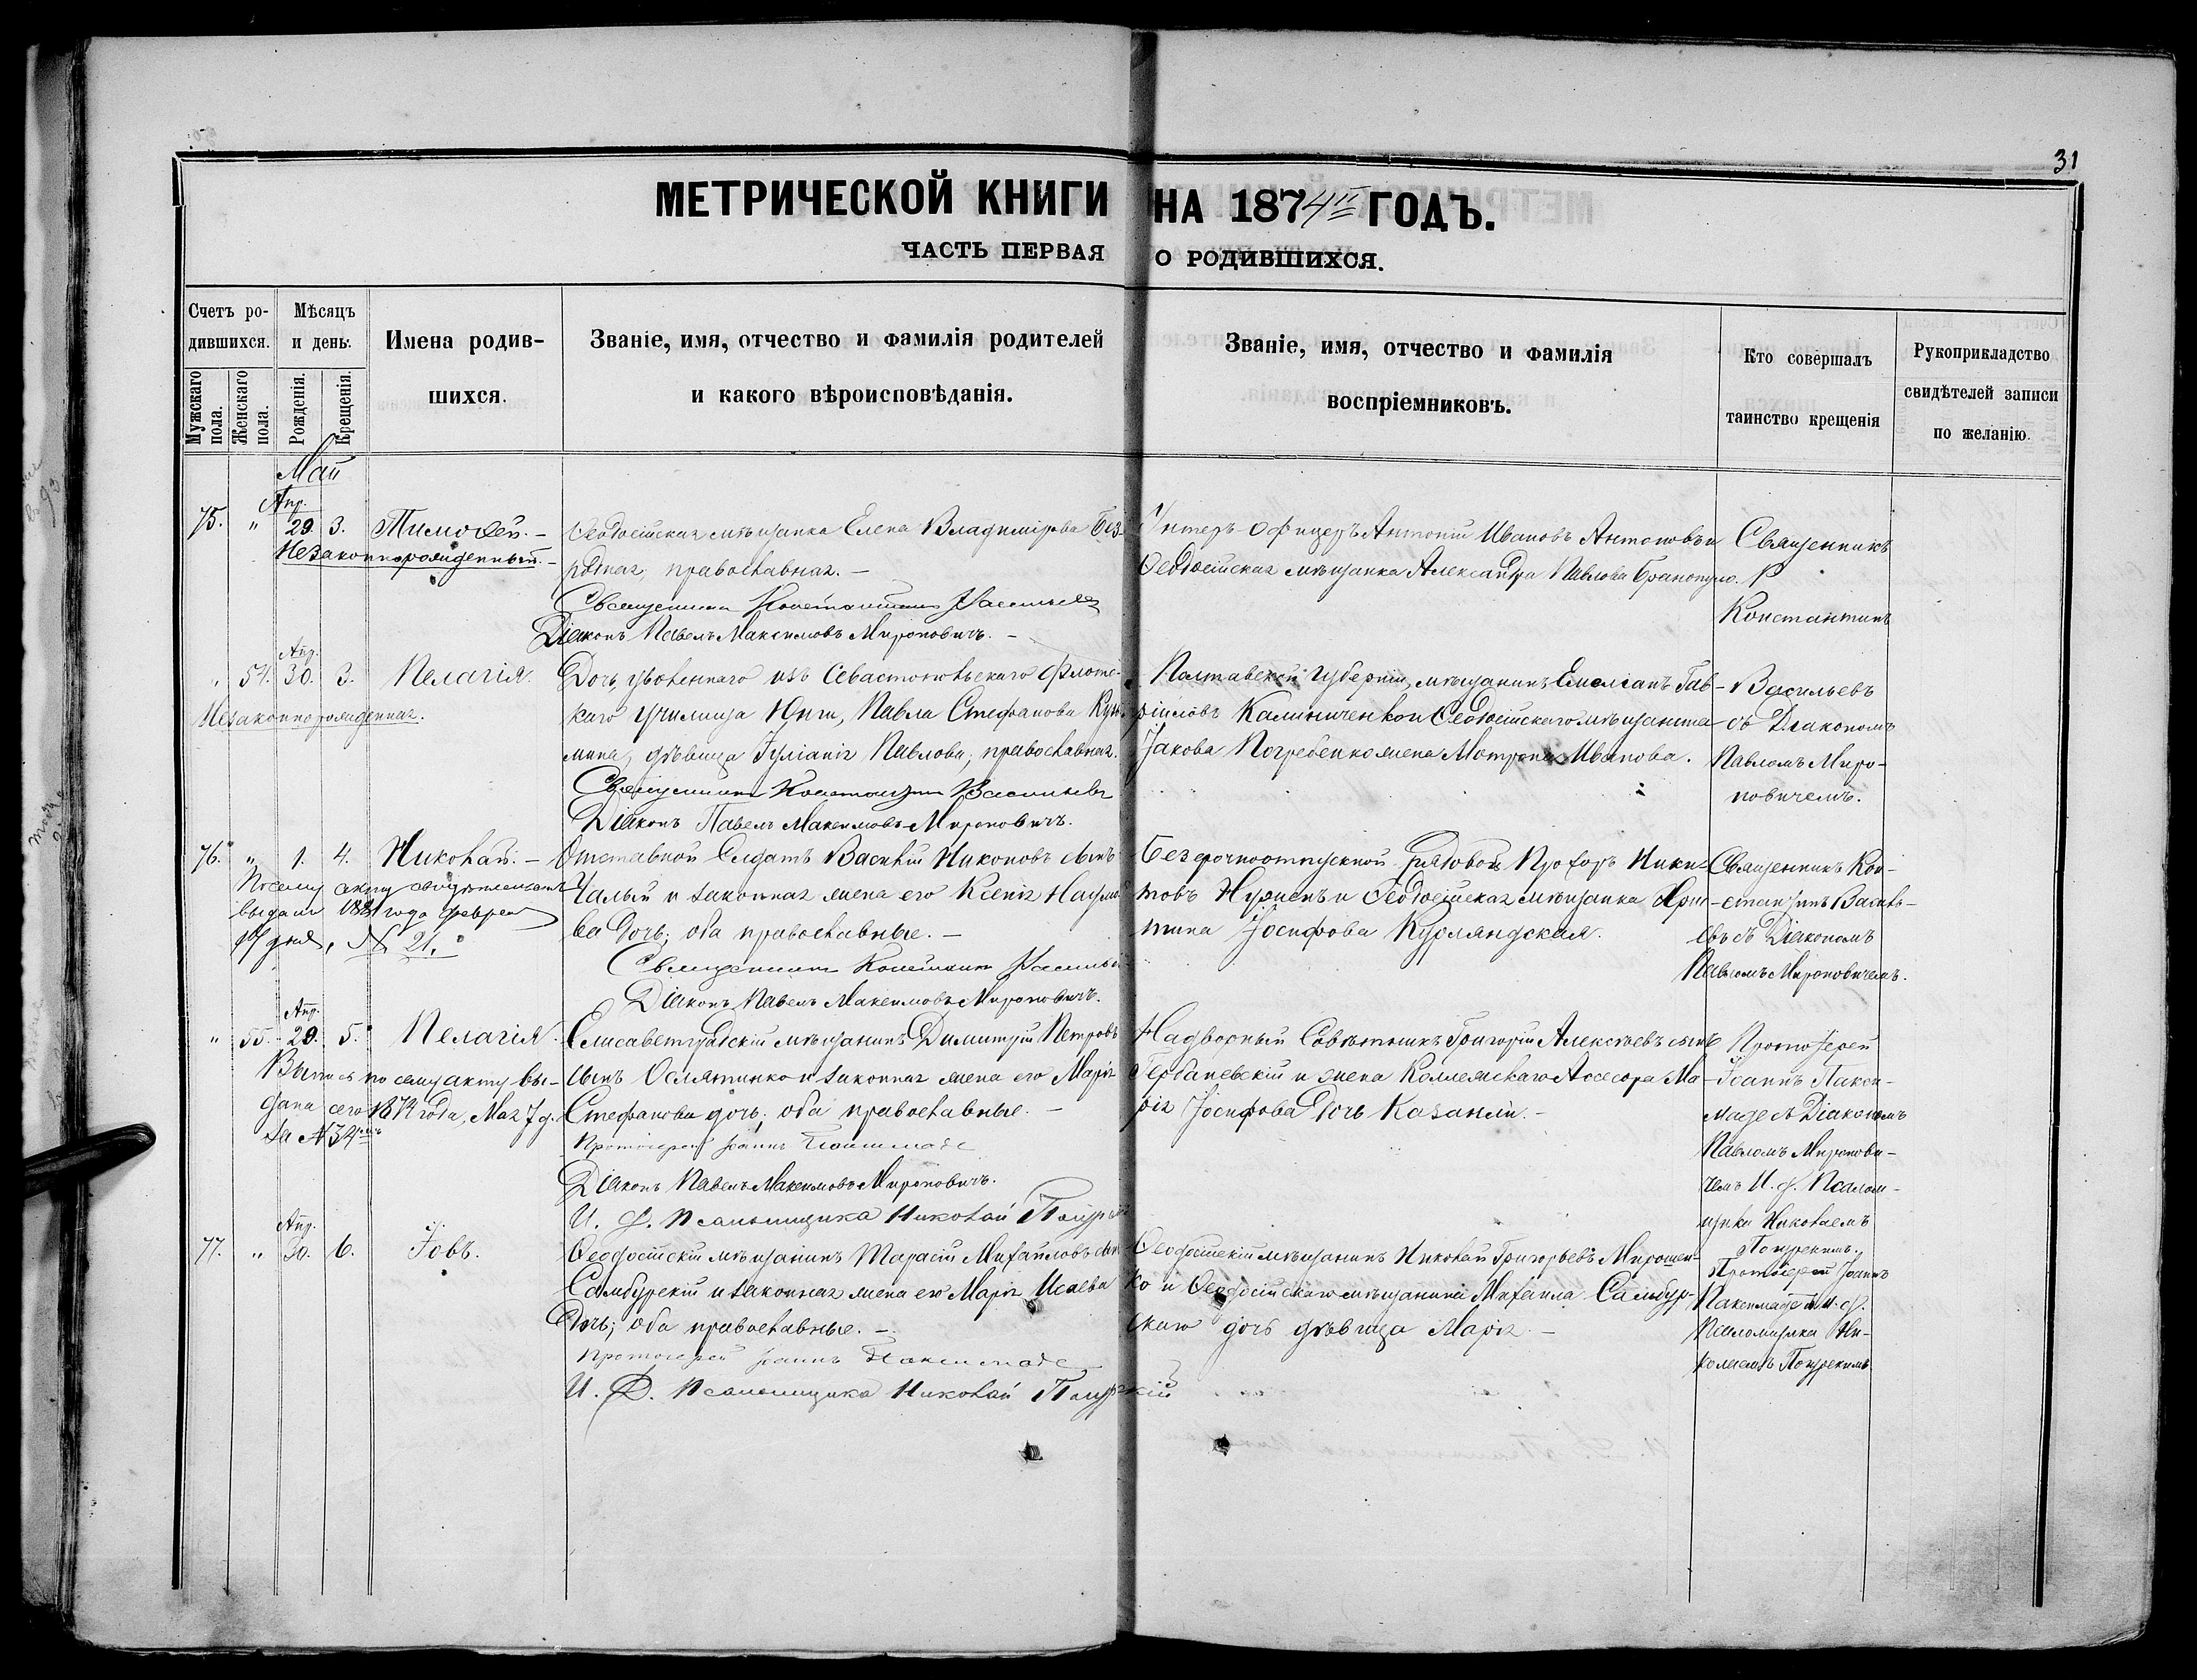 31
МЕТРИЧЕСКОЙ КНИГИ НА 1874й ГОДЪ.
ЧАСТЬ ПЕРВАЯ О РОДИВШИХСЯ.
Счетъ ро-
дившихся.
Мужскаго пола.
Женскаго пола.
Мѣсяцъ
и день.
Рожденія.
Крещенія.
Имена родив-
шихся.
Званіе, имя, отчество и фамилія родителей
и какого вѣроисповѣданія.
Званіе, имя, отчество и фамилія
воспріемниковъ.
Кто совершалъ
таинство крещенія
Рукоприкладство
свидѣтелей записи
по желанію.
Май
Апр.
75. " 29 3. Тимоѳей. –
Незаконнорожденный. –
Ѳеодосійская мѣщанка Елена Владимірова Без-
родная, православная. –
Священникъ Константинъ Васильевъ
Діаконъ Павелъ Максимовъ Мироновичъ. –
Унтеръ-офицеръ Антоній Ивановъ Антоновъ и
Ѳеодосійская мѣщанка Александра Павлова
Священникъ
Константинъ
Апр.
" 54. 30. 3. Пелагія.
Незаконнорожденная.
Дочь, уволеннаго изъ Севастопольскаго флотс-
каго училища Юнги, Павла Стефанова Кузь-
мина, дѣвица Іуліанія Павлова, православная.
Священникъ Константинъ Васильевъ
Діаконъ Павелъ Максимовъ Мироновичъ.
Полтавской губерніи, мѣщанинъ Емеліанъ Гав-
ріиловъ Калиниченко и Ѳеодосійскаго мѣщанина
Іакова Погребенко жена Мотрона Иванова.
Васильевъ
съ Діакономъ
Павломъ Миро-
новичемъ.
76. " 1. 4. Николай. –
По сему акту свидѣтельство
выдано 1881 года Февраля
дня, № 21.
Отставной Солдатъ Василій Никоновъ сынъ
Чалый и законная жена его Ксенія Наумо-
ва дочь; оба православные. –
Священникъ Константинъ Васильевъ
Діаконъ Павелъ Максимовъ Мироновичъ.
Безсрочноотпускной Рядовой Прохоръ Ники-
товъ и Ѳеодосійская мѣщанка Хрис-
тина Іосифова Курляндская.
Священникъ Кон-
стантинъ Василь-
евъ съ Діакономъ
Павломъ Мироновичемъ.
Апр.
" 55. 29. 5. Пелагія.
Выпись по сему акту вы-
дана сего 1874 года, Мая 7 д.
за № 34
Елисаветградскій мѣщанинъ Димитрій Петровъ
сынъ и законная жена его Марія
Стефанова дочь; оба православные. –
Протоіерей Іоаннъ Паксимаде
Діаконъ Павелъ Максимовъ Мироновичъ.
И. д. Псаломщика Николай
Надворный Совѣтникъ Григорій Алексѣевъ сынъ
Гербаневскій и жена Коллежскаго Ассесора Ма-
рія Іосифова дочь Казанли. –
Протоіерей
Іоаннъ Пакси-
маде съ Діакономъ
Павломъ Миронови-
чемъ И. д. Псалом-
щика Николаемъ
Апр.
77. " 30. 6. Іовъ.
Ѳеодосійскій мѣщанинъ Тарасій Михайловъ сынъ
Самбурскій и законная жена его Марія Исаева
дочь; оба православные. –
Протоіерей Іоаннъ Паксимаде
И. Д. Псаломщика Николай
Ѳеодосійскій мѣщанинъ Николай Григорьевъ Мирошен-
ко и Ѳеодосійскаго мѣщанина Михаила Самбур-
скаго дочь дѣвица Марія. –
Протоіерей Іоаннъ
Паксимаде и И. д.
Псаломщика Ни-
колаемъ